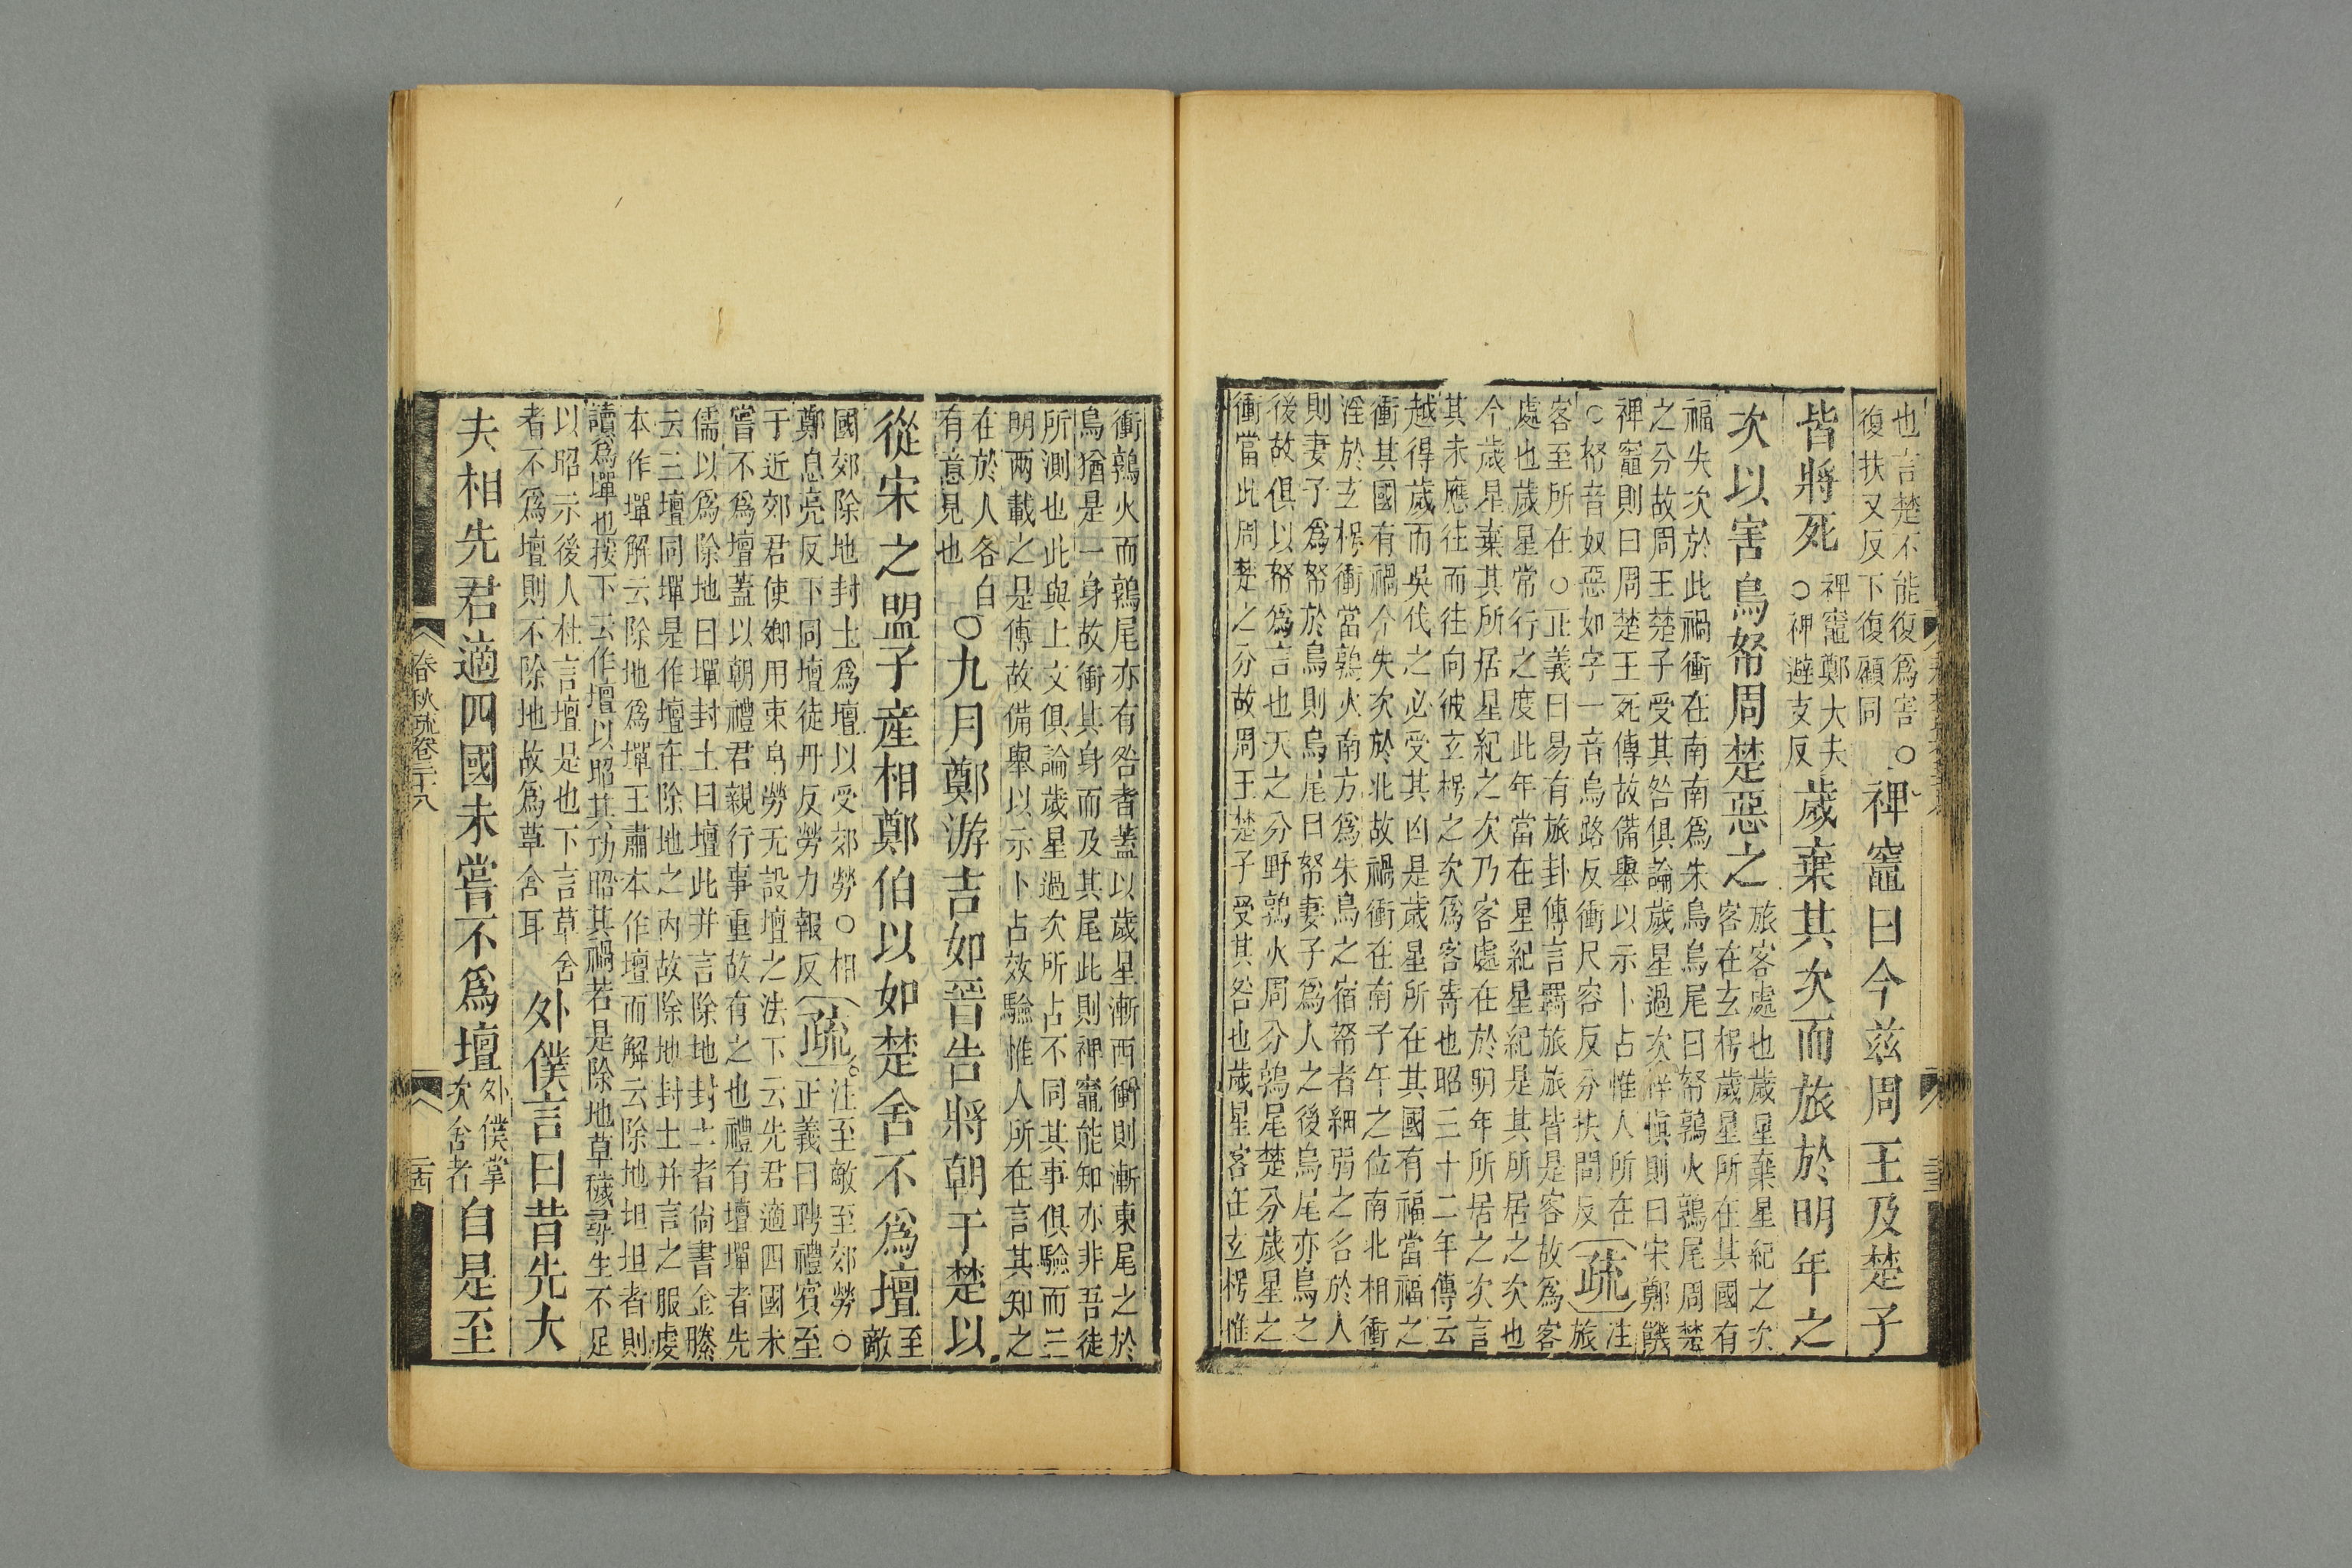 也言楚不能復爲害○
復扶又反下復顧同
裨竈曰今兹周王及楚子
皆將死
裨竈鄭大夫
○裨避支反
歲棄其次而旅於明年之
次以害鳥帑周楚惡之
旅客處也歲星棄星紀之次
客在玄枵歲星所在其國有
福失次於此禍衝在南南爲朱鳥鳥尾曰帑鶉火鶉尾周楚
之分故周王楚子受其咎俱論歲星過次梓愼則曰宋鄭饑
裨竈則曰周楚王死傳故備舉以示卜占惟人所在
○帑音奴惡如字一音烏路反衝尺容反分扶問反
疏
注
旅
客至所在○正義曰易有旅卦傳言羇旅旅皆是客故爲客
處也歲星常行之度此年當在星紀星紀是其所居之次也
今歲星棄其所居星紀之次乃客處在於明年所居之次言
其未應往而往向彼玄枵之次爲客寄也昭三十二年傳云
越得歲而吳伐之必受其凶是歲星所在其國有福當福之
衝其國有禍今失次於北故禍衝在南子午之位南北相衝
淫於玄枵衝當鶉火南方爲朱鳥之宿帑者細弱之名於人
則妻子爲帑於鳥則鳥尾曰帑妻子爲人之後鳥尾亦鳥之
後故俱以帑爲言也天之分野鶉火周分鶉尾楚分歲星之
衝當此周楚之分故周王楚子受其咎也歲星客在玄枵惟
衝鶉火而鶉尾亦有咎者蓋以歲星漸西衝則漸東尾之於
鳥猶是一身故衝其身而及其尾此則裨竈能知亦非吾徒
所測也此與上文俱論歲星過次所占不同其事俱驗而三
明两載之是傳故備舉以示卜占效驗惟人所在言其知之
在於人各自
有意見也
○九月鄭游吉如晉告將朝于楚以
從宋之盟子産相鄭伯以如楚舍不爲壇
至
敵
國郊除地封土爲壇以受郊勞○相
鄭息亮反下同壇徒丹反勞力報反
疏
注至敵至郊勞○
正義曰聘禮賓至
于近郊君使卿用束帛勞无設壇之法下云先君適四國未
嘗不爲壇蓋以朝禮君親行事重故有之也禮有壇墠者先
儒以爲除地曰墠封土曰壇此并言除地封土者尙書金縢
云三壇同墠是作壇在除地之内故除地封土并言之服虔
本作墠解云除地爲墠王肅本作壇而解云除地坦坦者則
讀爲墠也按下云作壇以昭其功昭其禍若是除地草穢尋生不足
以昭示後人杜言壇是也下言草舍
者不爲壇則不除地故爲草舍耳
外僕言曰昔先大
夫相先君適四國未嘗不爲壇
外僕掌
次舍者
自是至
春秋疏卷三十八